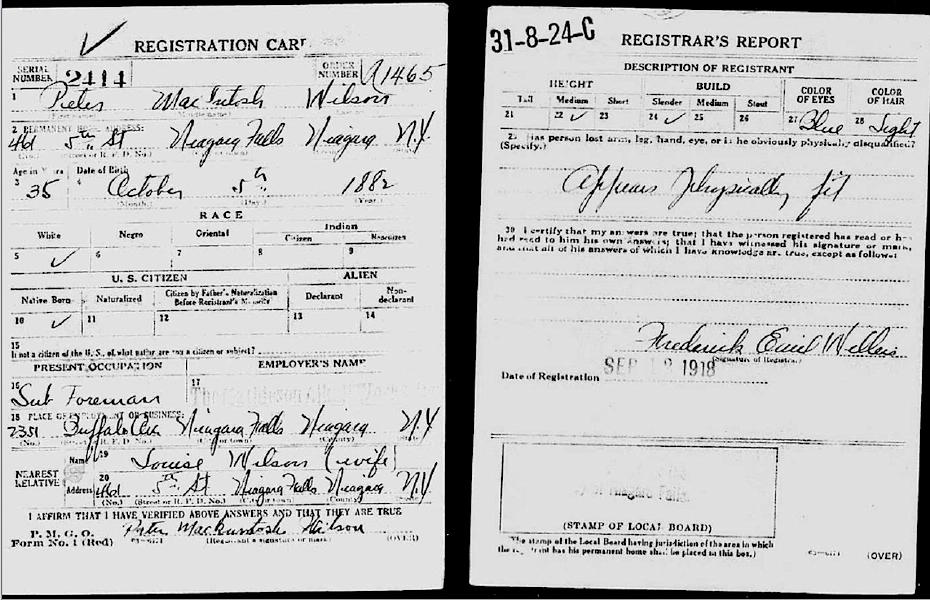 REGISTRATION CARD
SERIAL NUMBER 2414 ORDER NUMBER A1465
1 Peter MacIntosh Wilson
2 PERMANENT HOME ADDRESS:
461 5th St Niagara Falls Niagara N.Y
(No.) (Street or R. F. D. No.)
Age in Years Date of Birth
3 35 4 October 5th 1882
(Month.) (Day.) (Year.)
RACE
White Negro Oriental Indian
Citizen Noncitizen
5 ✓ 6 7 8 9
U. S. CITIZEN ALIEN
Native Born Naturalized Citizen by Father's Naturalization Before Registrant's Majority Declarant Non-declarant
10 ✓ 11 12 13 14
15
If not a citizen of the U. S., of what nation are you a citizen or subject?
PRESENT OCCUPATION EMPLOYER'S NAME
16 Sub Foreman 17
18 PLACE OF EMPLOYMENT OR BUSINESS:
2351 Buffalo Ave Niagara Falls Niagara N.Y
(No.) (Street or R. F. D. No.) (City or town) (County) (State)
NEAREST RELATIVE Name 19 Louise Wilson (wife)
Address 20 461 5th St Niagara Falls Niagara N.Y
(No.) (Street or R. F. D. No.) (City or town) (County) (State)
I AFFIRM THAT I HAVE VERIFIED ABOVE ANSWERS AND THAT THEY ARE TRUE
P. M. G. O.
Form No. 1 (Red) Peter MacKintosh Wilson
(Registrant's signature or mark) (OVER)
31-8-24-C
REGISTRAR'S REPORT
DESCRIPTION OF REGISTRANT
HEIGHT BUILD COLOR OF EYES COLOR OF HAIR
Tall Medium Short Slender Medium Stout
21 22 ✓ 23 24 ✓ 25 26 27 Blue 28 Light
29 Has person lost arm, leg, hand, eye, or is he obviously physically disqualified?
(Specify.)
Appears physically fit
30 I certify that my answers are true; that the person registered has read or has
had read to him his own answers; that I have witnessed his signature or mark,
and that all of his answers of which I have knowledge are true, except as follows:
Frederick Emil Willers
(Signature of Registrar)
Date of Registration SEP 12 1918
Niagara Falls
(STAMP OF LOCAL BOARD)
(The stamp of the Local Board having jurisdiction of the area in which
the registrant has his permanent home shall be placed in this box.)
(OVER)